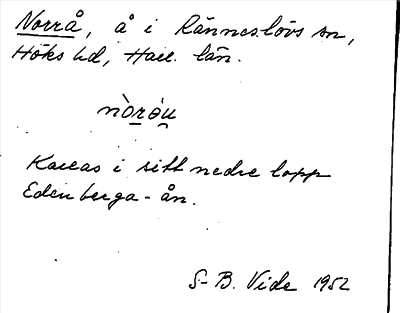 Norrå, å i Ränneslövs sn,
Höks hd, Hall. län.
nòrǝ̀u
Kallas i sitt nedre lopp
Edenberga-ån.
S-B. Vide 1952